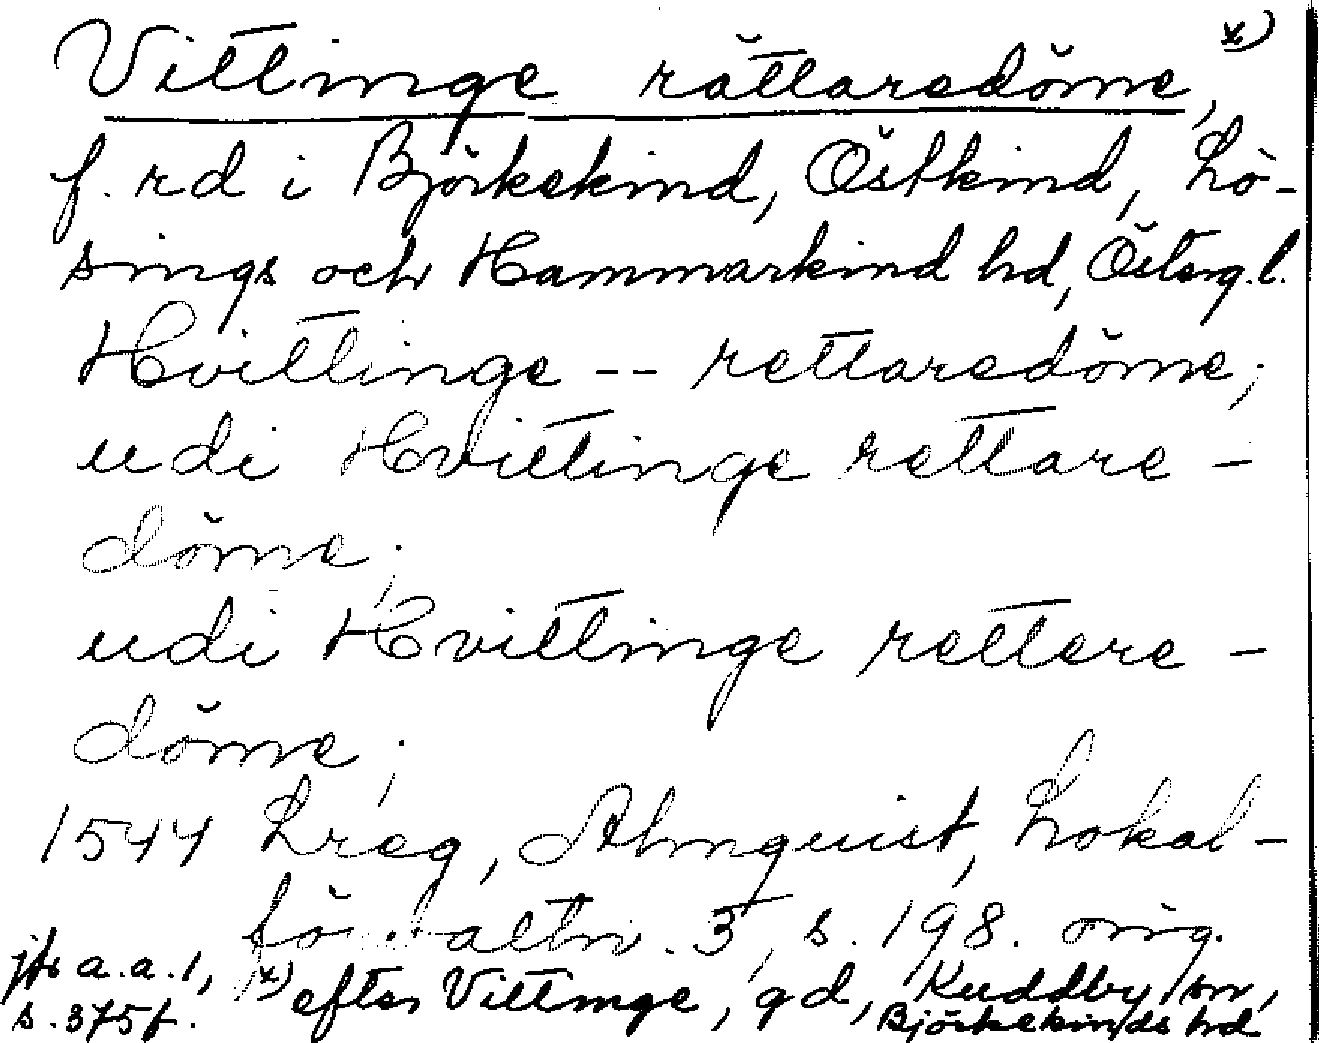 Vittinge rättaredöme, x)
f. rd i Björkekind, Östkind, Lö-
sings och Hammarkind hd, Österg.l.
Hvittinge -- rettaredöme;
udi Hvittinge rettare-
döme;
udi Hvittinge rettere-
döme;
1544 Lreg, Almquist, Lokal-
förvaltn. 3, s. 198. orig.
jfr a.a. 1, x) efter Vittinge, gd, Kuddby sn,
s. 375f. Björkekinds hd